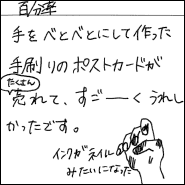 百分率
手をべとべとにして作った
手刷りのポストカードが
たくさん
売れて、すご――くうれし
かったです。
インクがネイル
みたいになった